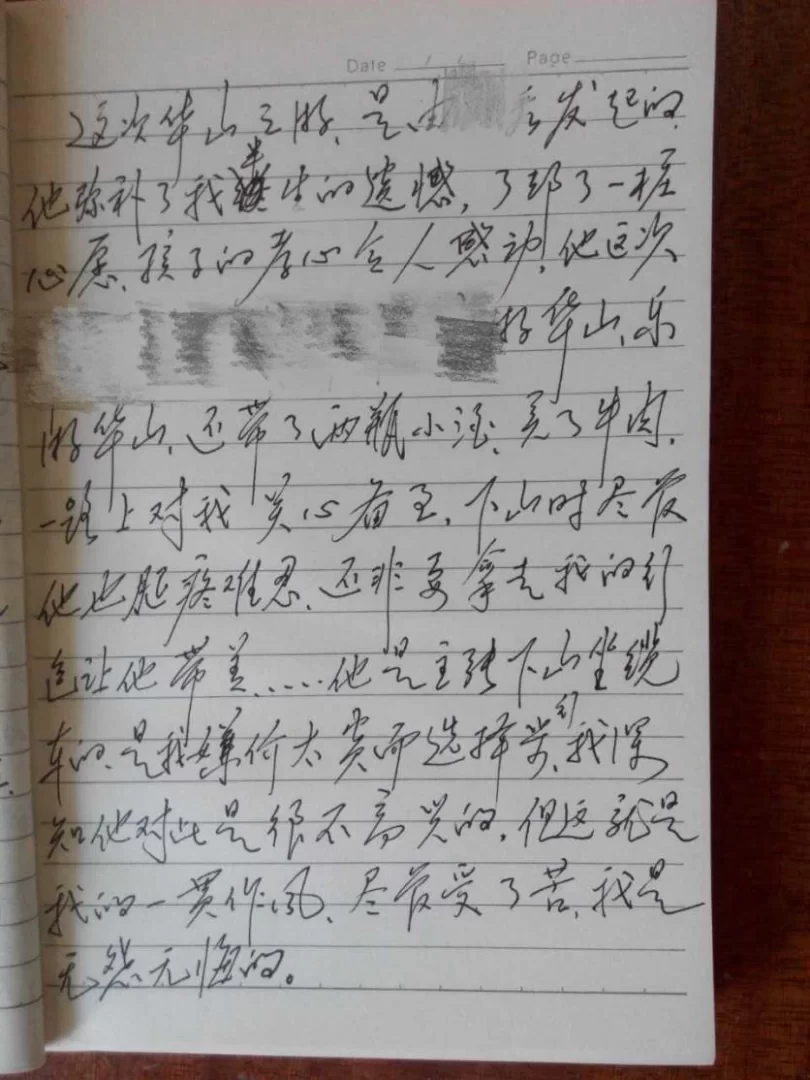 Date Page
这次华山之游、是由 发起的、
他弥补了我半生的遗憾，了却了一桩
心愿、孩子的孝心令人感动，他这次
华山、乐
游华山、还带了两瓶小酒、买了牛肉、
一路上对我关心备至、下山时尽管
他也腿疼难忍、还非要拿走我的行
包让他带着……他是主张下山坐缆
车的、是我嫌价太贵而选择步行、我深
知他对此是很不高兴的，但这就是
我的一贯作风、尽管受了苦、我是
无怨无悔的。